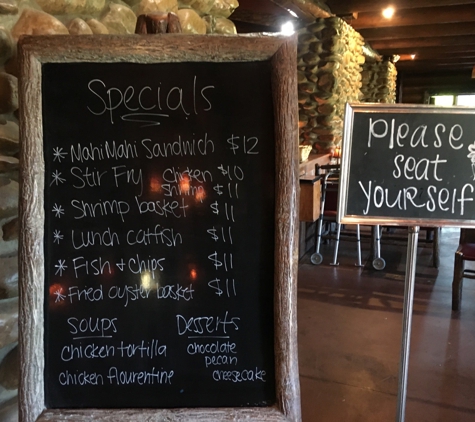 Specials
* MahiMahi Sandwich $12
* Stir Fry Chicken $10
Shrimp $11
* Shrimp basket $11
* Lunch catfish $11
* Fish & chips $11
* Fried oyster basket $11
Soups
chicken tortilla
chicken flourentine
Desserts
chocolate
pecan
cheesecake
Please
seat
yourself